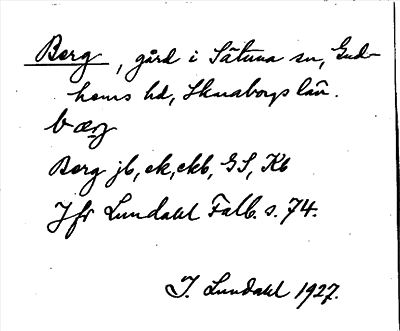 Berg, gård i Sätuna sn, Gud-
hems hd, Skaraborgs län.
bærg
Berg jb, ek, ekb, GS, Kb
Jfr Lundahl Falb. s. 74.
I. Lundahl 1927.